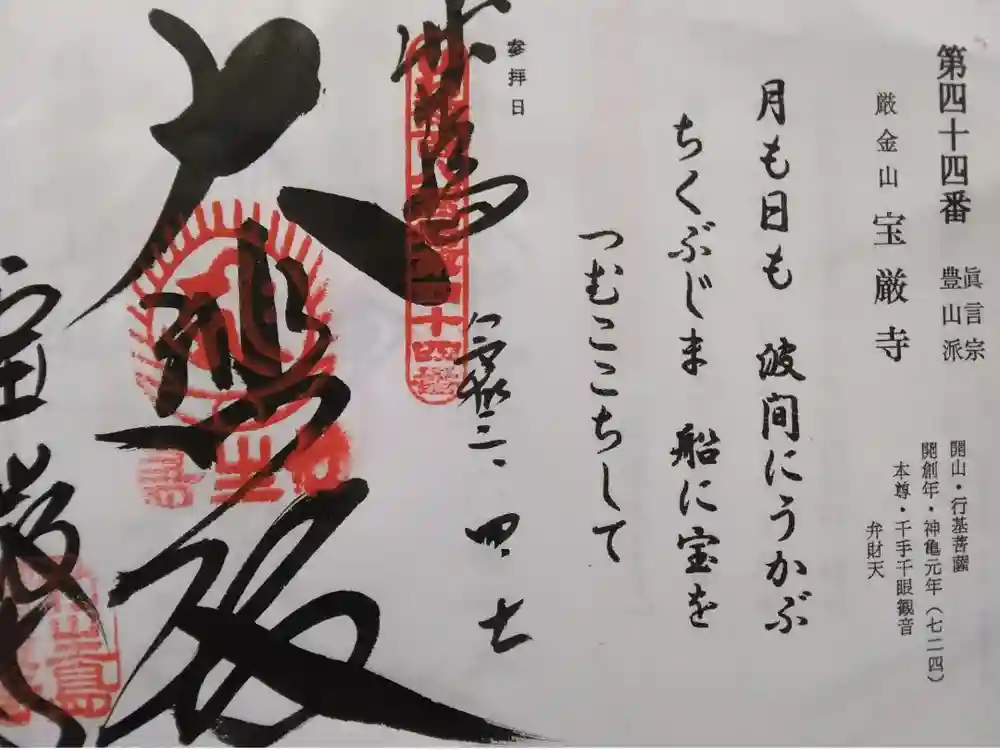 第四十四番
眞言宗
豊山派
厳金山 宝厳寺
開山・行基菩薩
開創年・神亀元年(七二四)
本尊・千手千眼観音
弁財天
月も日も 波間にうかぶ
ちくぶじま 船に宝を
つむここちして
参拝日
三、四、七
十四番
大
殿
宝厳
竹生島